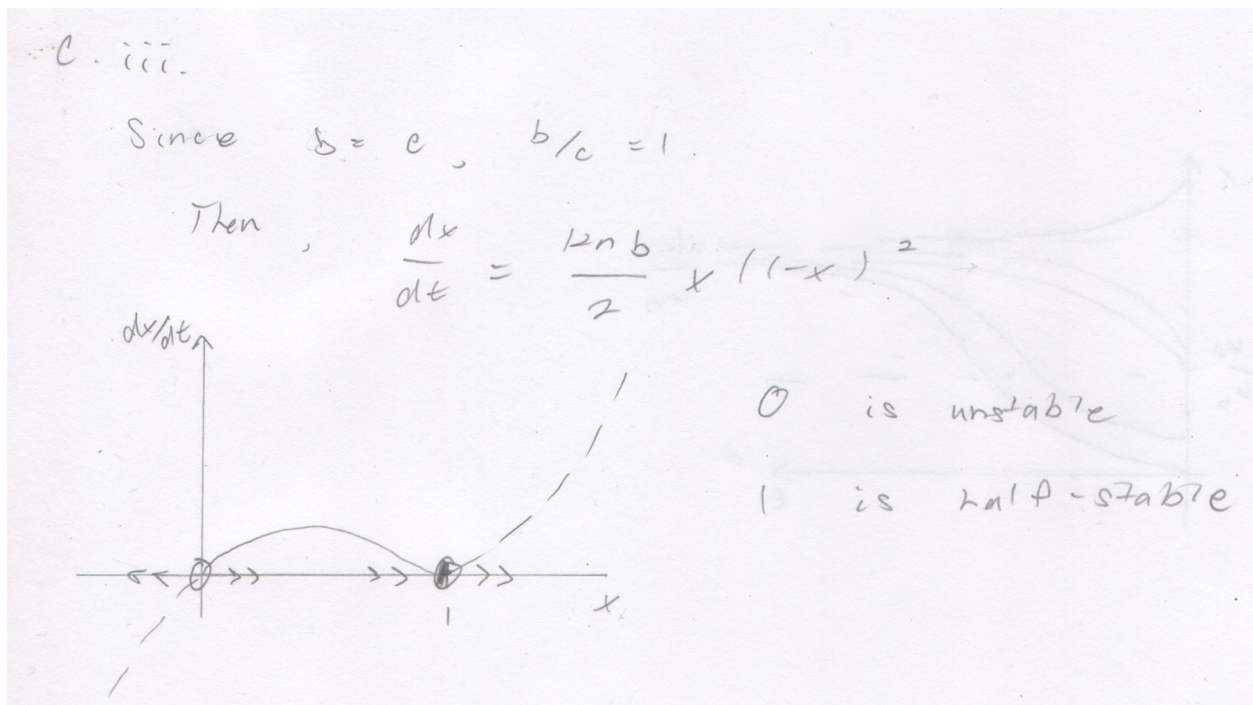 C. iii.
Since b = c, b/c = 1.
Then, dx/dt = 12nb/2 x(1-x)²
dx/dt
0 is unstable
1 is half-stable
x
1